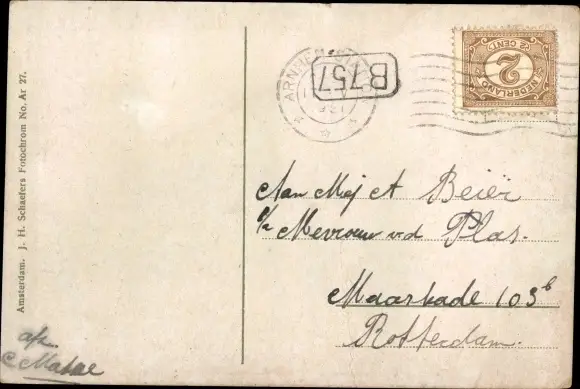 ARNHEM-STATION
B757
2 CENT
2
NEDERLAND
Aan Mej A Beier
c/o Mevrouw v.d Plas.
Maaskade 103b
Rotterdam.
Amsterdam. J. H. Schaefers Fotochrom No. Ar 27.
afz.